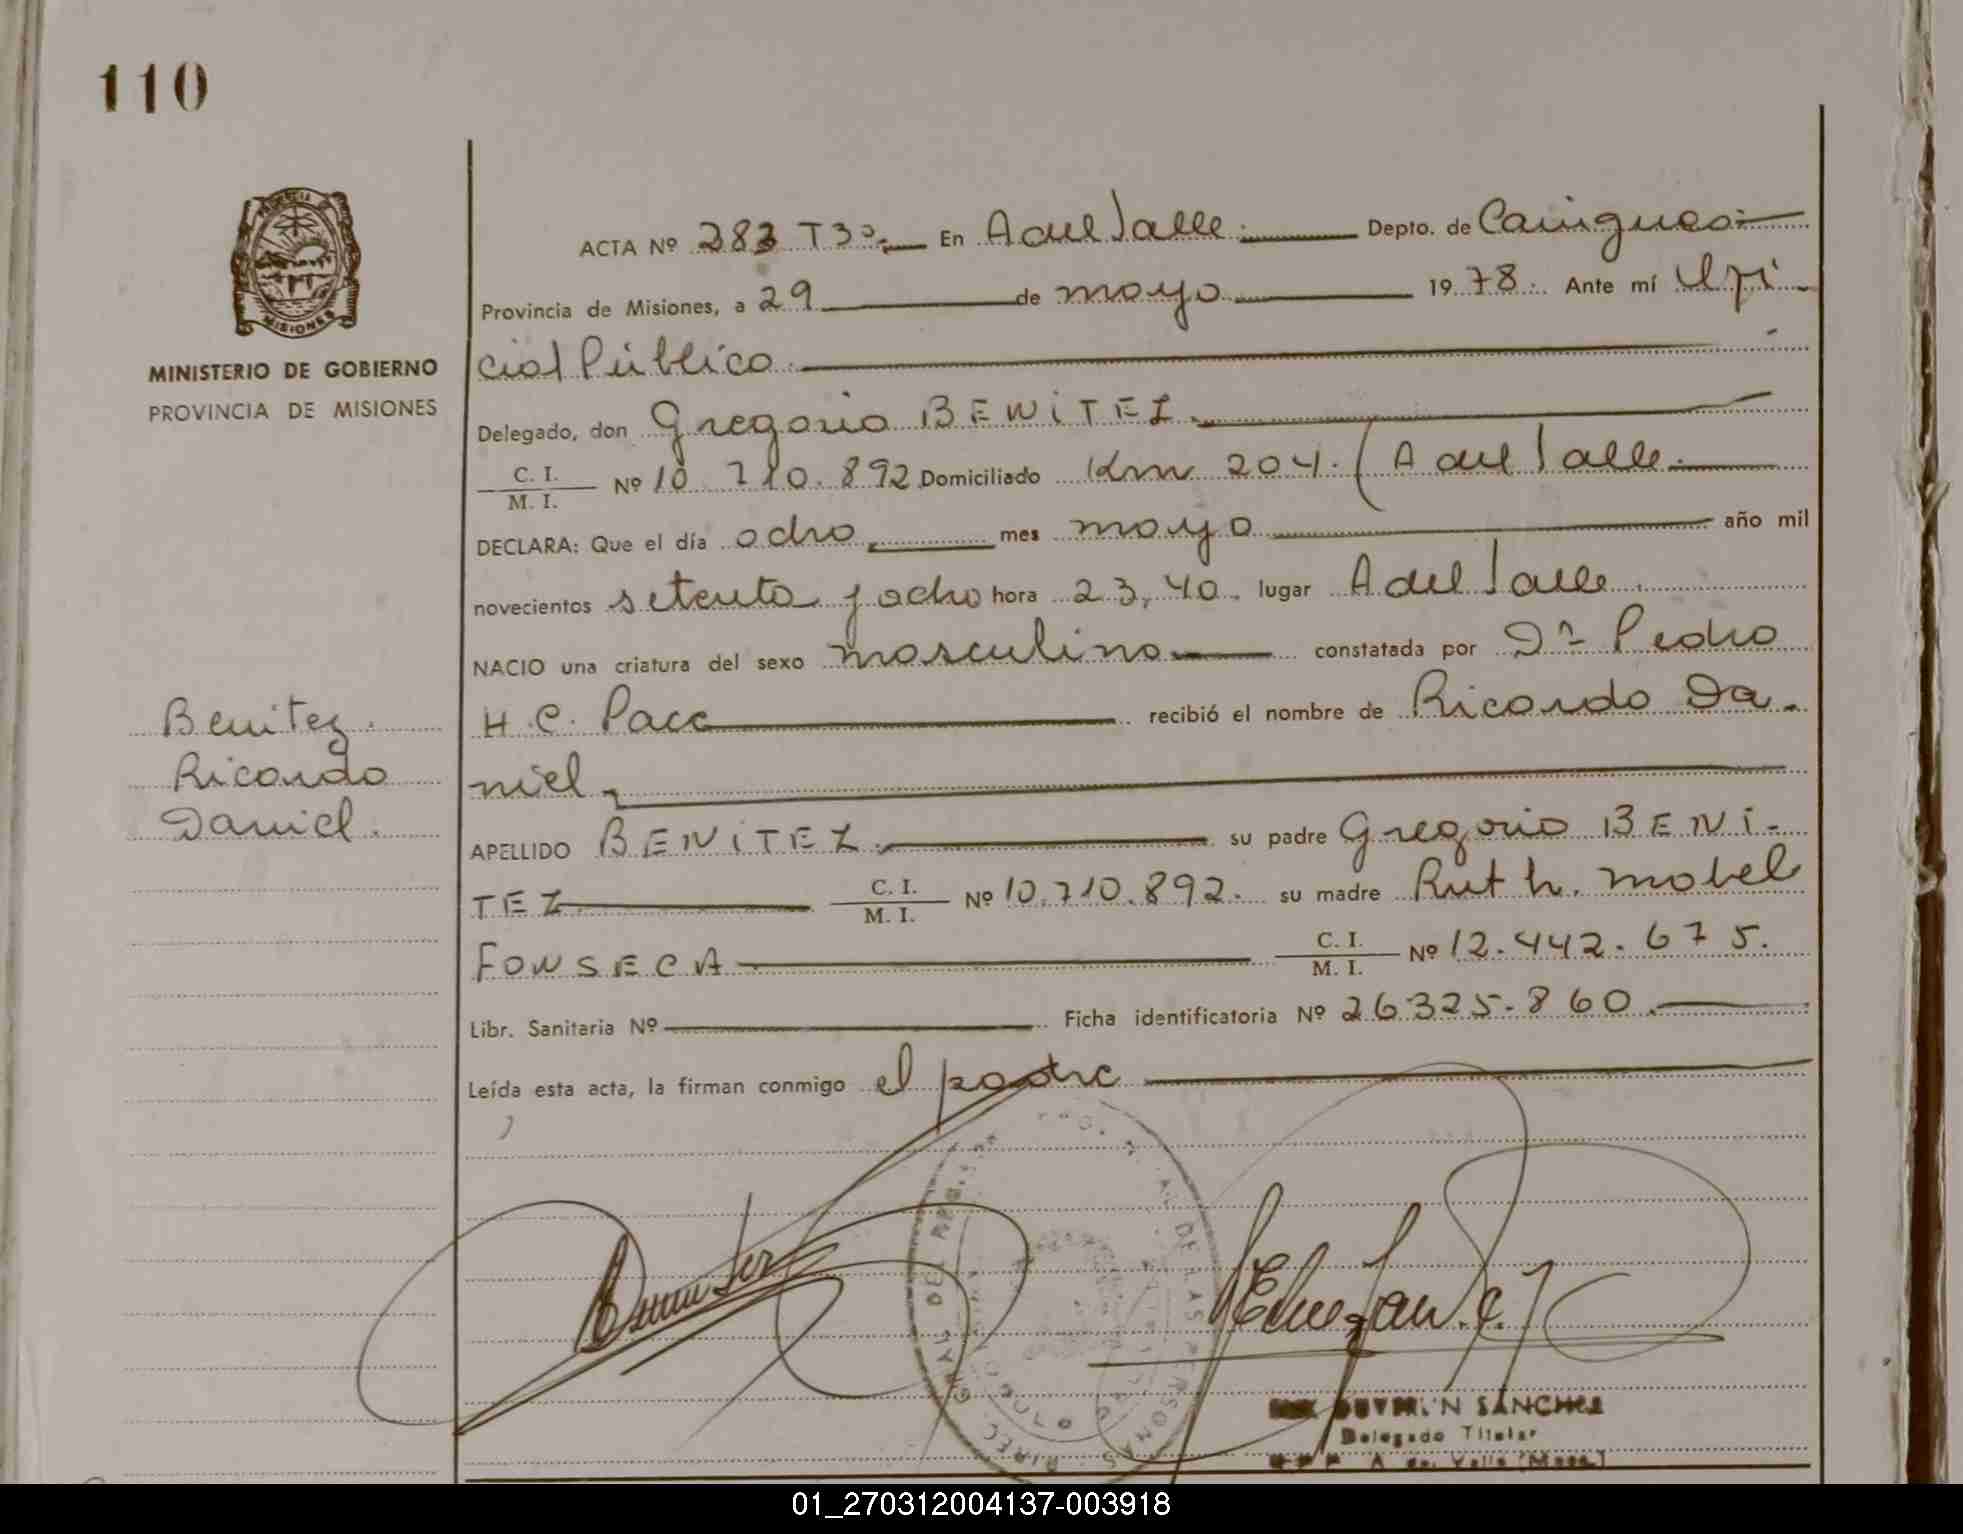 110
MISIONES
MINISTERIO DE GOBIERNO
PROVINCIA DE MISIONES
ACTA Nº 283 T3º. En A del Valle. Depto. de Cainguas
Provincia de Misiones, a 29 de mayo 1978. Ante mí Ofi-
cial Público.
Delegado, don Gregorio BENITEZ.
C. I. / M. I. Nº 10.710.892 Domiciliado Km 204. (A del Valle.
DECLARA: Que el día ocho mes mayo año mil
novecientos setenta y ocho hora 23,40. lugar A del Valle.
NACIO una criatura del sexo masculino constatada por Dr Pedro
H. C. Pacc recibió el nombre de Ricardo Da-
niel.
Benitez.
Ricardo
Daniel.
APELLIDO BENITEZ. su padre Gregorio BENI-
TEZ C. I. / M. I. Nº 10.710.892. su madre Ruth. Mabel
FONSECA C. I. / M. I. Nº 12.442.675.
Libr. Sanitaria Nº Ficha identificatoria Nº 26325-860.
Leída esta acta, la firman conmigo el padre
DE LAS PERSONAS
SANCHEZ
Delegado Titular
01_270312004137-003918